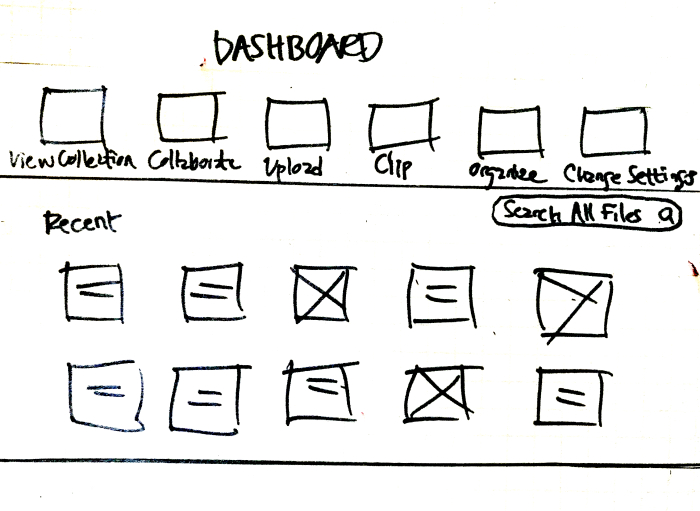 DASHBOARD
View Collection Collaborate Upload Clip Organize Change Settings
Search All Files
Recent